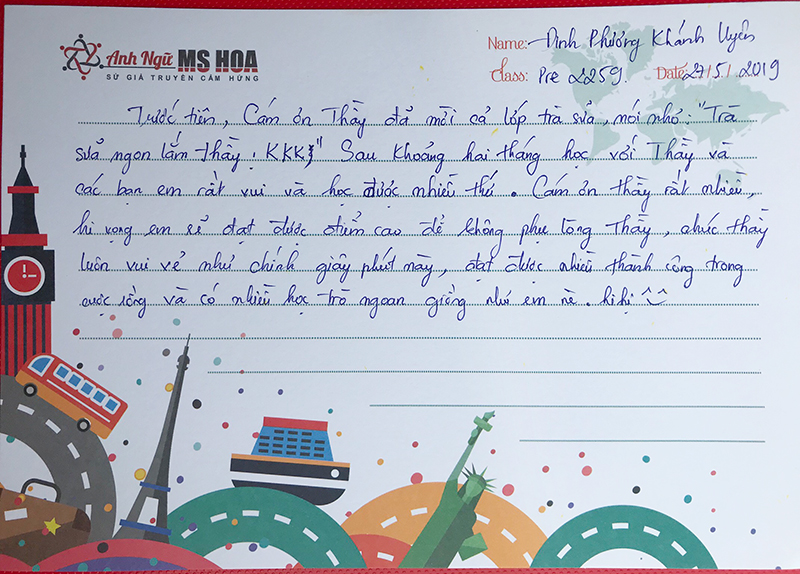 Anh Ngữ MS HOA
SỨ GIẢ TRUYỀN CẢM HỨNG
Name: Đinh Phương Khánh Uyên
Class: Pre 2259.
Date 27/5/2019
Trước tiên, Cám ơn Thầy đã mời cả lớp trà sữa, nói nhỏ: "Trà
sữa ngon lắm thầy! KKK}" Sau khoảng hai tháng học với Thầy và
các bạn em rất vui và học được nhiều thứ. Cám ơn thầy rất nhiều,
hi vọng em sẽ đạt được điểm cao để không phụ lòng Thầy, chúc thầy
luôn vui vẻ như chính giây phút này, đạt được nhiều thành công trong
cuộc sống và có nhiều học trò ngoan giống như em nè. hihi ^^